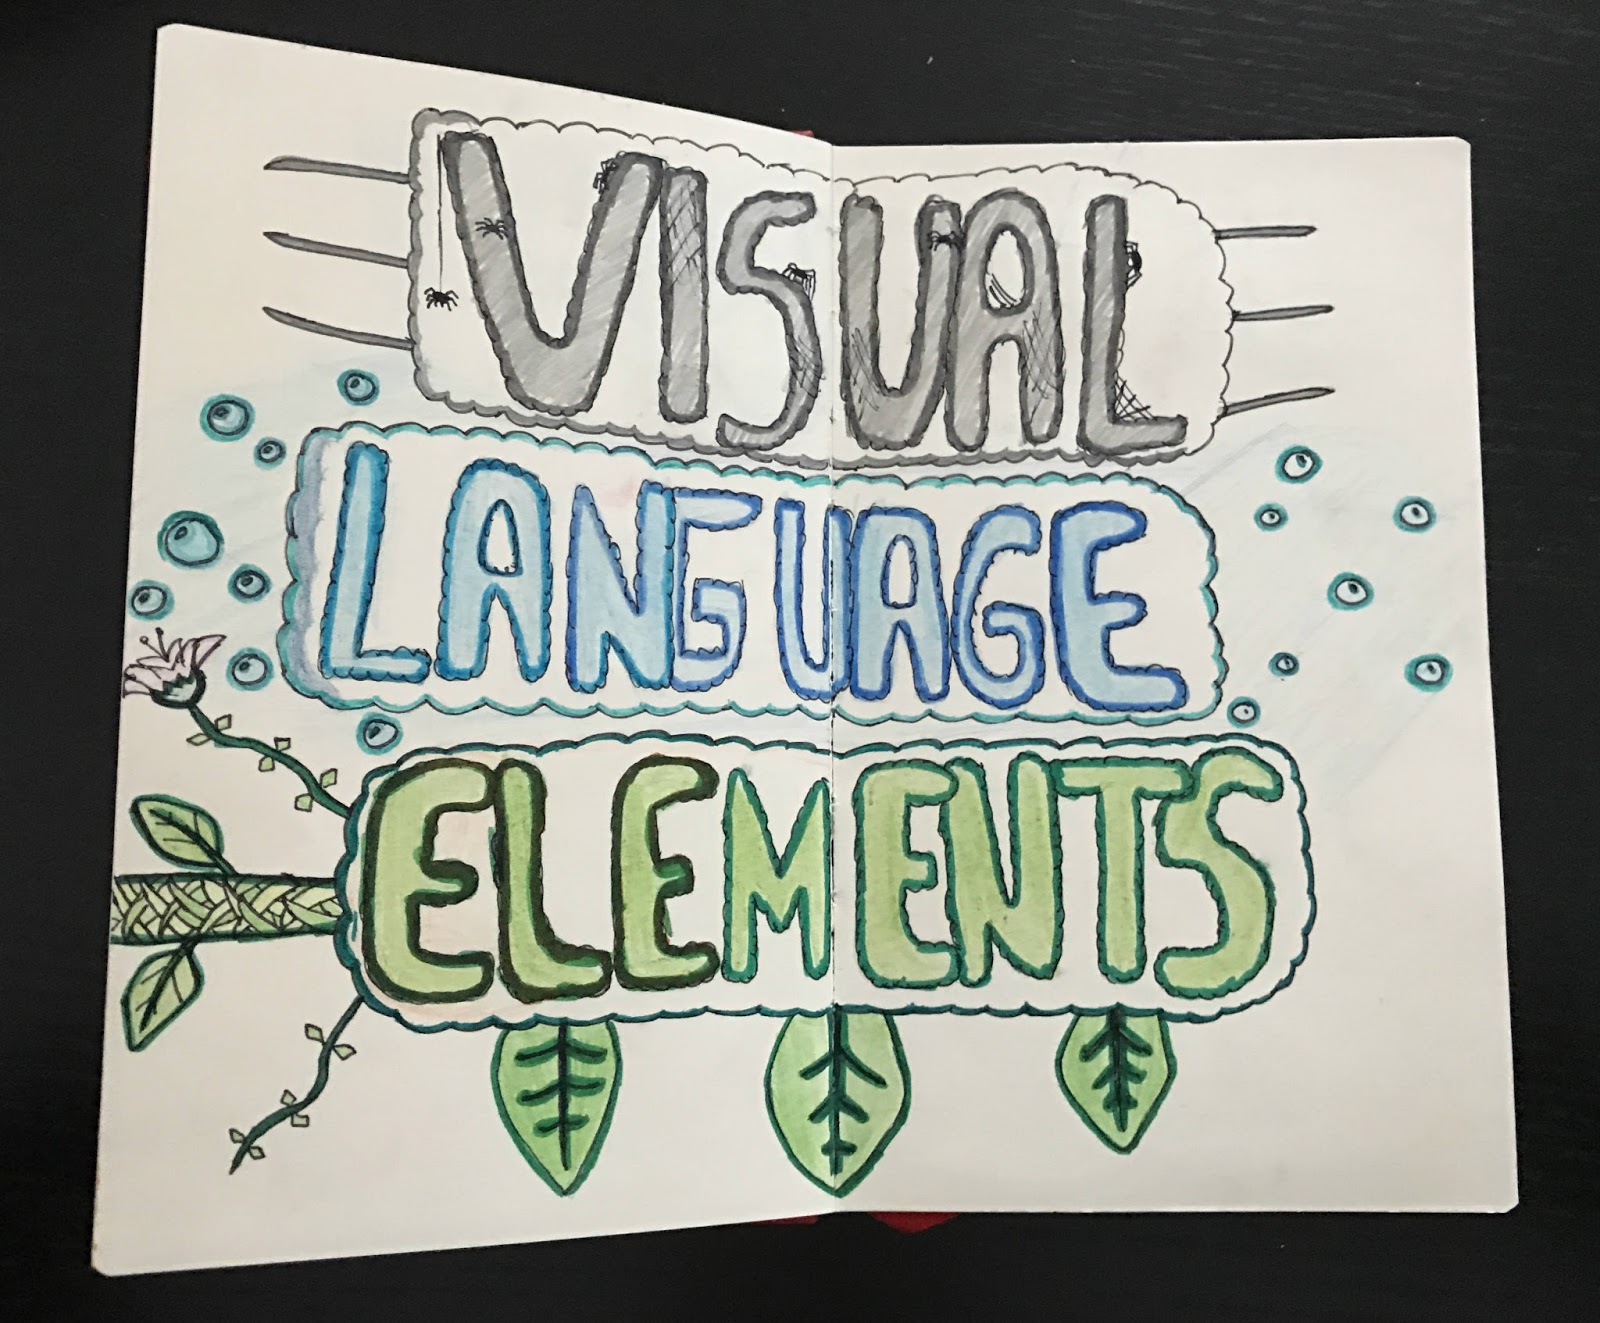 VISUAL
LANGUAGE
ELEMENTS